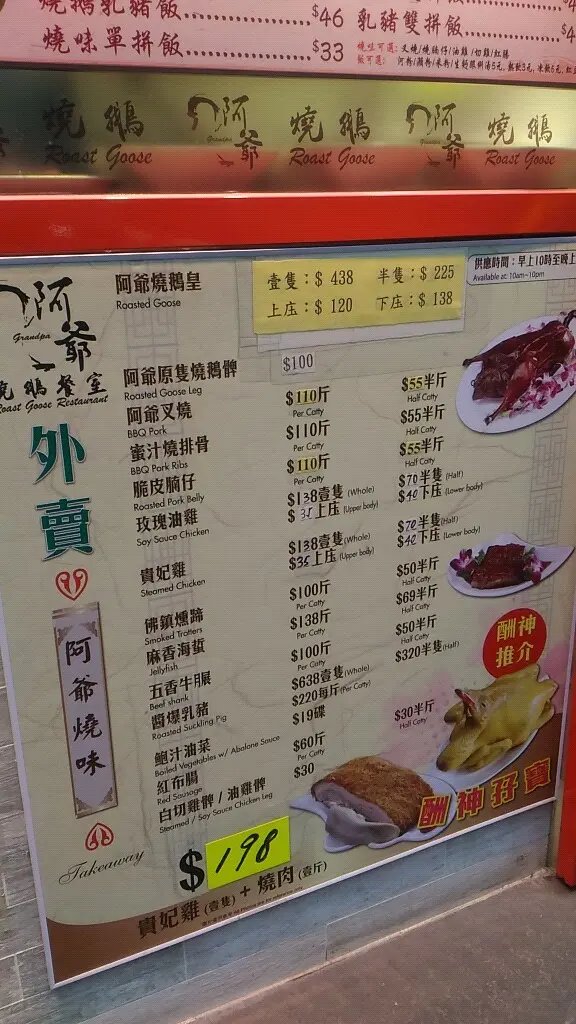 燒鵝乳豬飯 $46 乳豬雙拼飯
燒味單拼飯 $33
燒味可選: 叉燒/燒腩仔/油雞/切雞/紅腸
燒鵝 阿爺 燒鵝 阿爺 燒鵝
Roast Goose Grandpa Roast Goose Grandpa Roast Goose
供應時間:早上10時至晚上
Available at: 10am~10pm
阿爺
Grandpa
燒鵝餐室
Roast Goose Restaurant
外賣
阿爺燒味
Takeaway
阿爺燒鵝皇
Roasted Goose
壹隻:$ 438 半隻:$ 225
上庄:$ 120 下庄:$ 138
阿爺原隻燒鵝髀 $100
Roasted Goose Leg
阿爺叉燒 $110斤 $55半斤
BBQ Pork Per Catty Half Catty
蜜汁燒排骨 $110斤 $55半斤
BBQ Pork Ribs Per Catty Half Catty
脆皮腩仔 $110斤 $55半斤
Roasted Pork Belly Per Catty Half Catty
玫瑰油雞 $138壹隻 (Whole) $70半隻 (Half)
Soy Sauce Chicken $35上庄 (Upper body) $40下庄 (Lower body)
貴妃雞 $138壹隻 (Whole) $70半隻 (Half)
Steamed Chicken $35上庄 (Upper body) $40下庄 (Lower body)
佛鎮燻蹄 $100斤 $50半斤
Smoked Trotters Per Catty Half Catty
麻香海蜇 $138斤 $69半斤
Jellyfish Per Catty Half Catty
五香牛𦟌 $100斤 $50半斤
Beef shank Per Catty Half Catty
醬爆乳豬 $638壹隻 (Whole) $320半隻 (Half)
Roasted Suckling Pig $220每斤 (Per Catty)
鮑汁油菜 $19碟
Boiled Vegetables w/ Abalone Sauce
紅布腸 $60斤 $30半斤
Red Sausage Per Catty Half Catty
白切雞髀 / 油雞髀 $30
Steamed / Soy Sauce Chicken Leg
酬神
推介
酬神孖寶
$198
貴妃雞 (壹隻) + 燒肉 (壹斤)